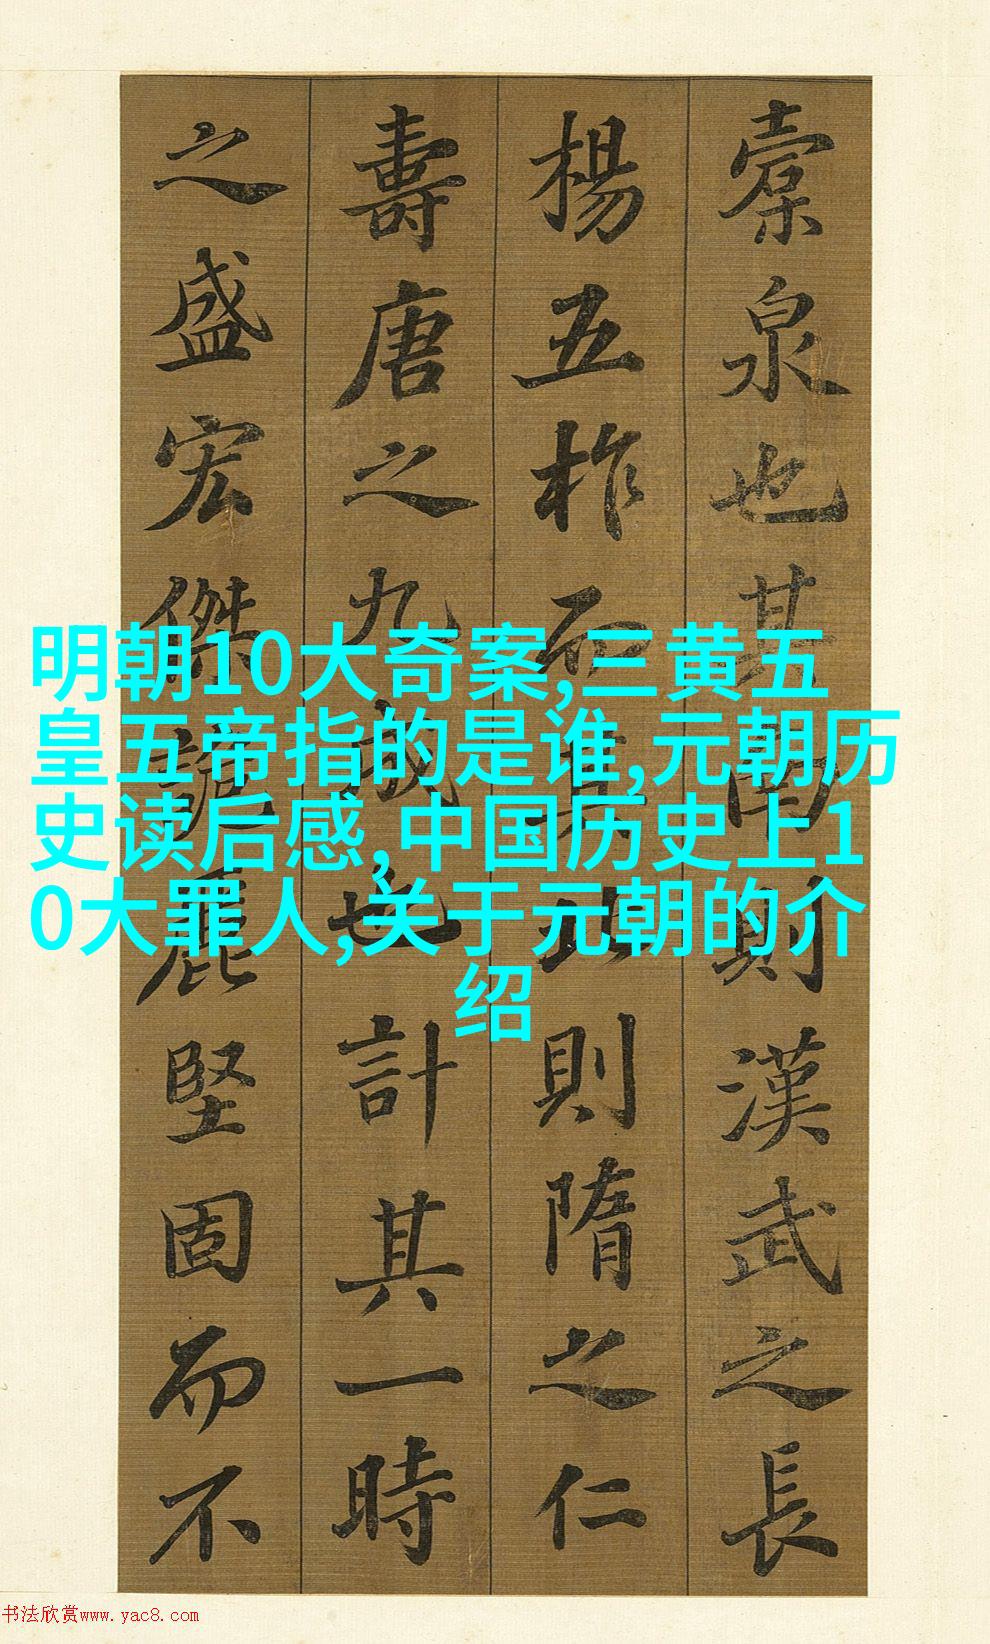 橐泉也其南則漢武之長
楊五柞而其北則隋之仁
壽唐之九成也計其一時
之盛宏傑詭麗堅固而不
明朝10大奇案,三黄五
皇五帝指的是谁,元朝历
史读后感,中国历史上1
0大罪人,关于元朝的介
绍
书法欣赏www.yac8.com